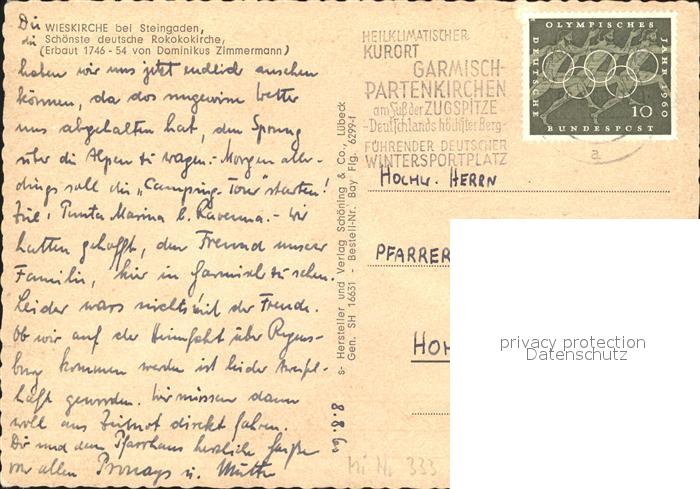 Die WIESKIRCHE bei Steingaden,
die Schönste deutsche Rokokokirche,
(Erbaut 1746 - 54 von Dominikus Zimmermann)
haben wir uns jetzt endlich ansehen
können, da das ungewisse Wetter
uns abgehalten hat, den Sprung
über die Alpen zu wagen. - Morgen aller-
dings soll die „Camping-Tour" starten!
Ziel: Punta Marina b. Ravenna. - Wir
hatten gehofft, den Freund unserer
Familie, hier in Garmisch zu sehen.
Leider wars nichts mit der Freude.
Ob wir auf der Heimfahrt über Regens-
burg kommen werden ist leider zweifel-
haft geworden. Wir müssen dann
wohl aus Zeitnot direkt fahren.
Dir und dem Pfarrhaus herzliche Grüße
von allen u. Mutter
8.8.60
s- Hersteller und Verlag Schöning & Co., Lübeck
Gen. SH 16631 - Bestell-Nr. Bay Flg. 6299-f
HEILKLIMATISCHER
KURORT
GARMISCH-
PARTENKIRCHEN
am Fuß der ZUGSPITZE
-Deutschlands höchster Berg-
FÜHRENDER DEUTSCHER
WINTERSPORTPLATZ
a
OLYMPISCHES
JAHR 1960
DEUTSCHE
BUNDESPOST
10
HOCHW. HERRN
PFARRER
HOH
privacy protection
Datenschutz
Mi Nr 333